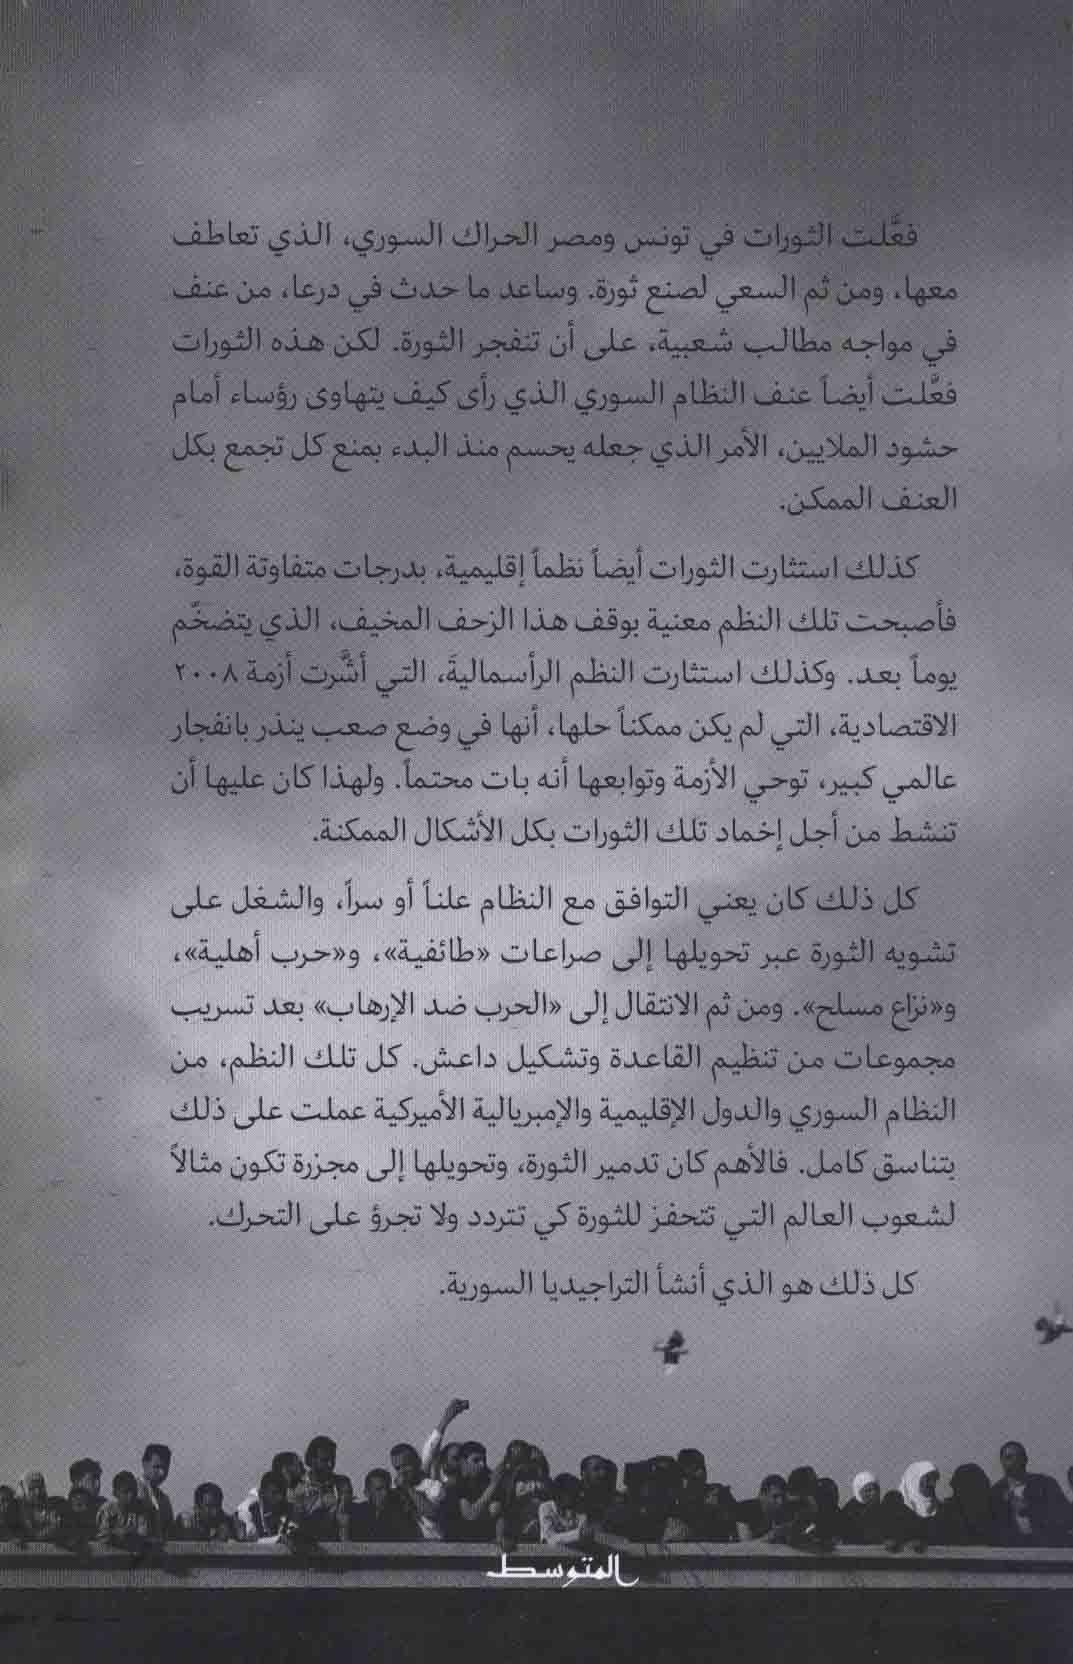 فعَّلت الثورات في تونس ومصر الحراك السوري، الذي تعاطف
معها، ومن ثم السعي لصنع ثورة. وساعد ما حدث في درعا، من عنف
في مواجه مطالب شعبية، على أن تنفجر الثورة. لكن هذه الثورات
فعَّلت أيضاً عنف النظام السوري الذي رأى كيف يتهاوى رؤساء أمام
حشود الملايين، الأمر الذي جعله يحسم منذ البدء بمنع كل تجمع بكل
العنف الممكن.
كذلك استثارت الثورات أيضاً نظماً إقليمية، بدرجات متفاوتة القوة،
فأصبحت تلك النظم معنية بوقف هذا الزحف المخيف، الذي يتضخّم
يوماً بعد. وكذلك استثارت النظم الرأسماليةَ، التي أشَّرت أزمة ٢٠٠٨
الاقتصادية، التي لم يكن ممكناً حلها، أنها في وضع صعب ينذر بانفجار
عالمي كبير، توحي الأزمة وتوابعها أنه بات محتماً. ولهذا كان عليها أن
تنشط من أجل إخماد تلك الثورات بكل الأشكال الممكنة.
كل ذلك كان يعني التوافق مع النظام علناً أو سراً، والشغل على
تشويه الثورة عبر تحويلها إلى صراعات «طائفية»، و«حرب أهلية»،
و«نزاع مسلح». ومن ثم الانتقال إلى «الحرب ضد الإرهاب» بعد تسريب
مجموعات من تنظيم القاعدة وتشكيل داعش. كل تلك النظم، من
النظام السوري والدول الإقليمية والإمبريالية الأميركية عملت على ذلك
بتناسق كامل. فالأهم كان تدمير الثورة، وتحويلها إلى مجزرة تكون مثالاً
لشعوب العالم التي تتحفز للثورة كي تتردد ولا تجرؤ على التحرك.
كل ذلك هو الذي أنشأ التراجيديا السورية.
المتوسط